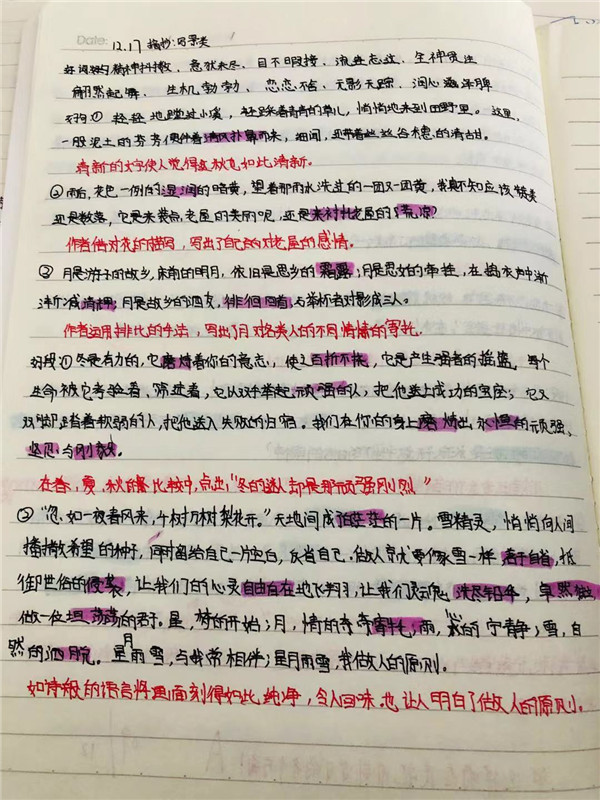 Date: 12.17 摘抄:写景类
好词:精神抖擞、意犹未尽、目不暇接、流连忘返、全神贯注
翩然起舞、生机勃勃、恋恋不舍、无影无踪、润心
好句① 轻轻地跳过小溪,轻踩着青青的草儿,悄悄地来到田野里。这里,
一股泥土的芬芳便伴着清风扑鼻而来,细闻,还带着丝丝谷穗的清甜。
清新的文字使人觉得这秋也如此清新。
②雨后,灰色一例的湿润的暗黄,望着那雨水洗过的一团又一团黄,我真不知应该赞美
还是数落,它是来装点老屋的美丽呢,还是来衬托老屋的荒凉?
作者借对花的描写,写出了自己的对老屋的感情。
③月是游子的故乡,床前的明月,依旧是思乡的霜露;月是思妇的牵挂,在捣衣声中渐
渐减清辉;月是故乡的酒友,徘徊回首,与举杯者对影成三人。
作者运用排比的手法,写出了月对各类人的不同情愫的寄托。
好段①冬是有力的,它磨炼着你的意志,使之百折不挠,它是产生强者的摇篮。每个
生命被它考验着、筛选着,它以双手举起顽强的人,把他送上成功的宝座;它又
双脚踏着软弱的人,把他送入失败的归宿。我们在你的身上磨炼出永恒的顽强、
坚忍与刚毅。
在春,夏,秋的景比较中,点出“冬的迷人却是那顽强刚烈”
②“忽如一夜春风来,千树万树梨花开。”天地间成白茫茫的一片。雪精灵,悄悄向人间
播撒希望的种子,同时留给自己一片空白,反省自己。做人就要像雪一样善于自省,抵
御世俗的侵袭,让我们的心灵自由自在地飞翔;让我们灵魂洗尽铅华,卓然
做一位坦荡荡的君子。星,梦的开始;月,情的寄托;雨,心的宁静;雪,自
然的洒脱。星月雨雪,与我常相伴;星月雨雪,我做人的原则。
如诗般的语言将画面刻得如此纯净,令人回味。也让人明白了做人的原则。